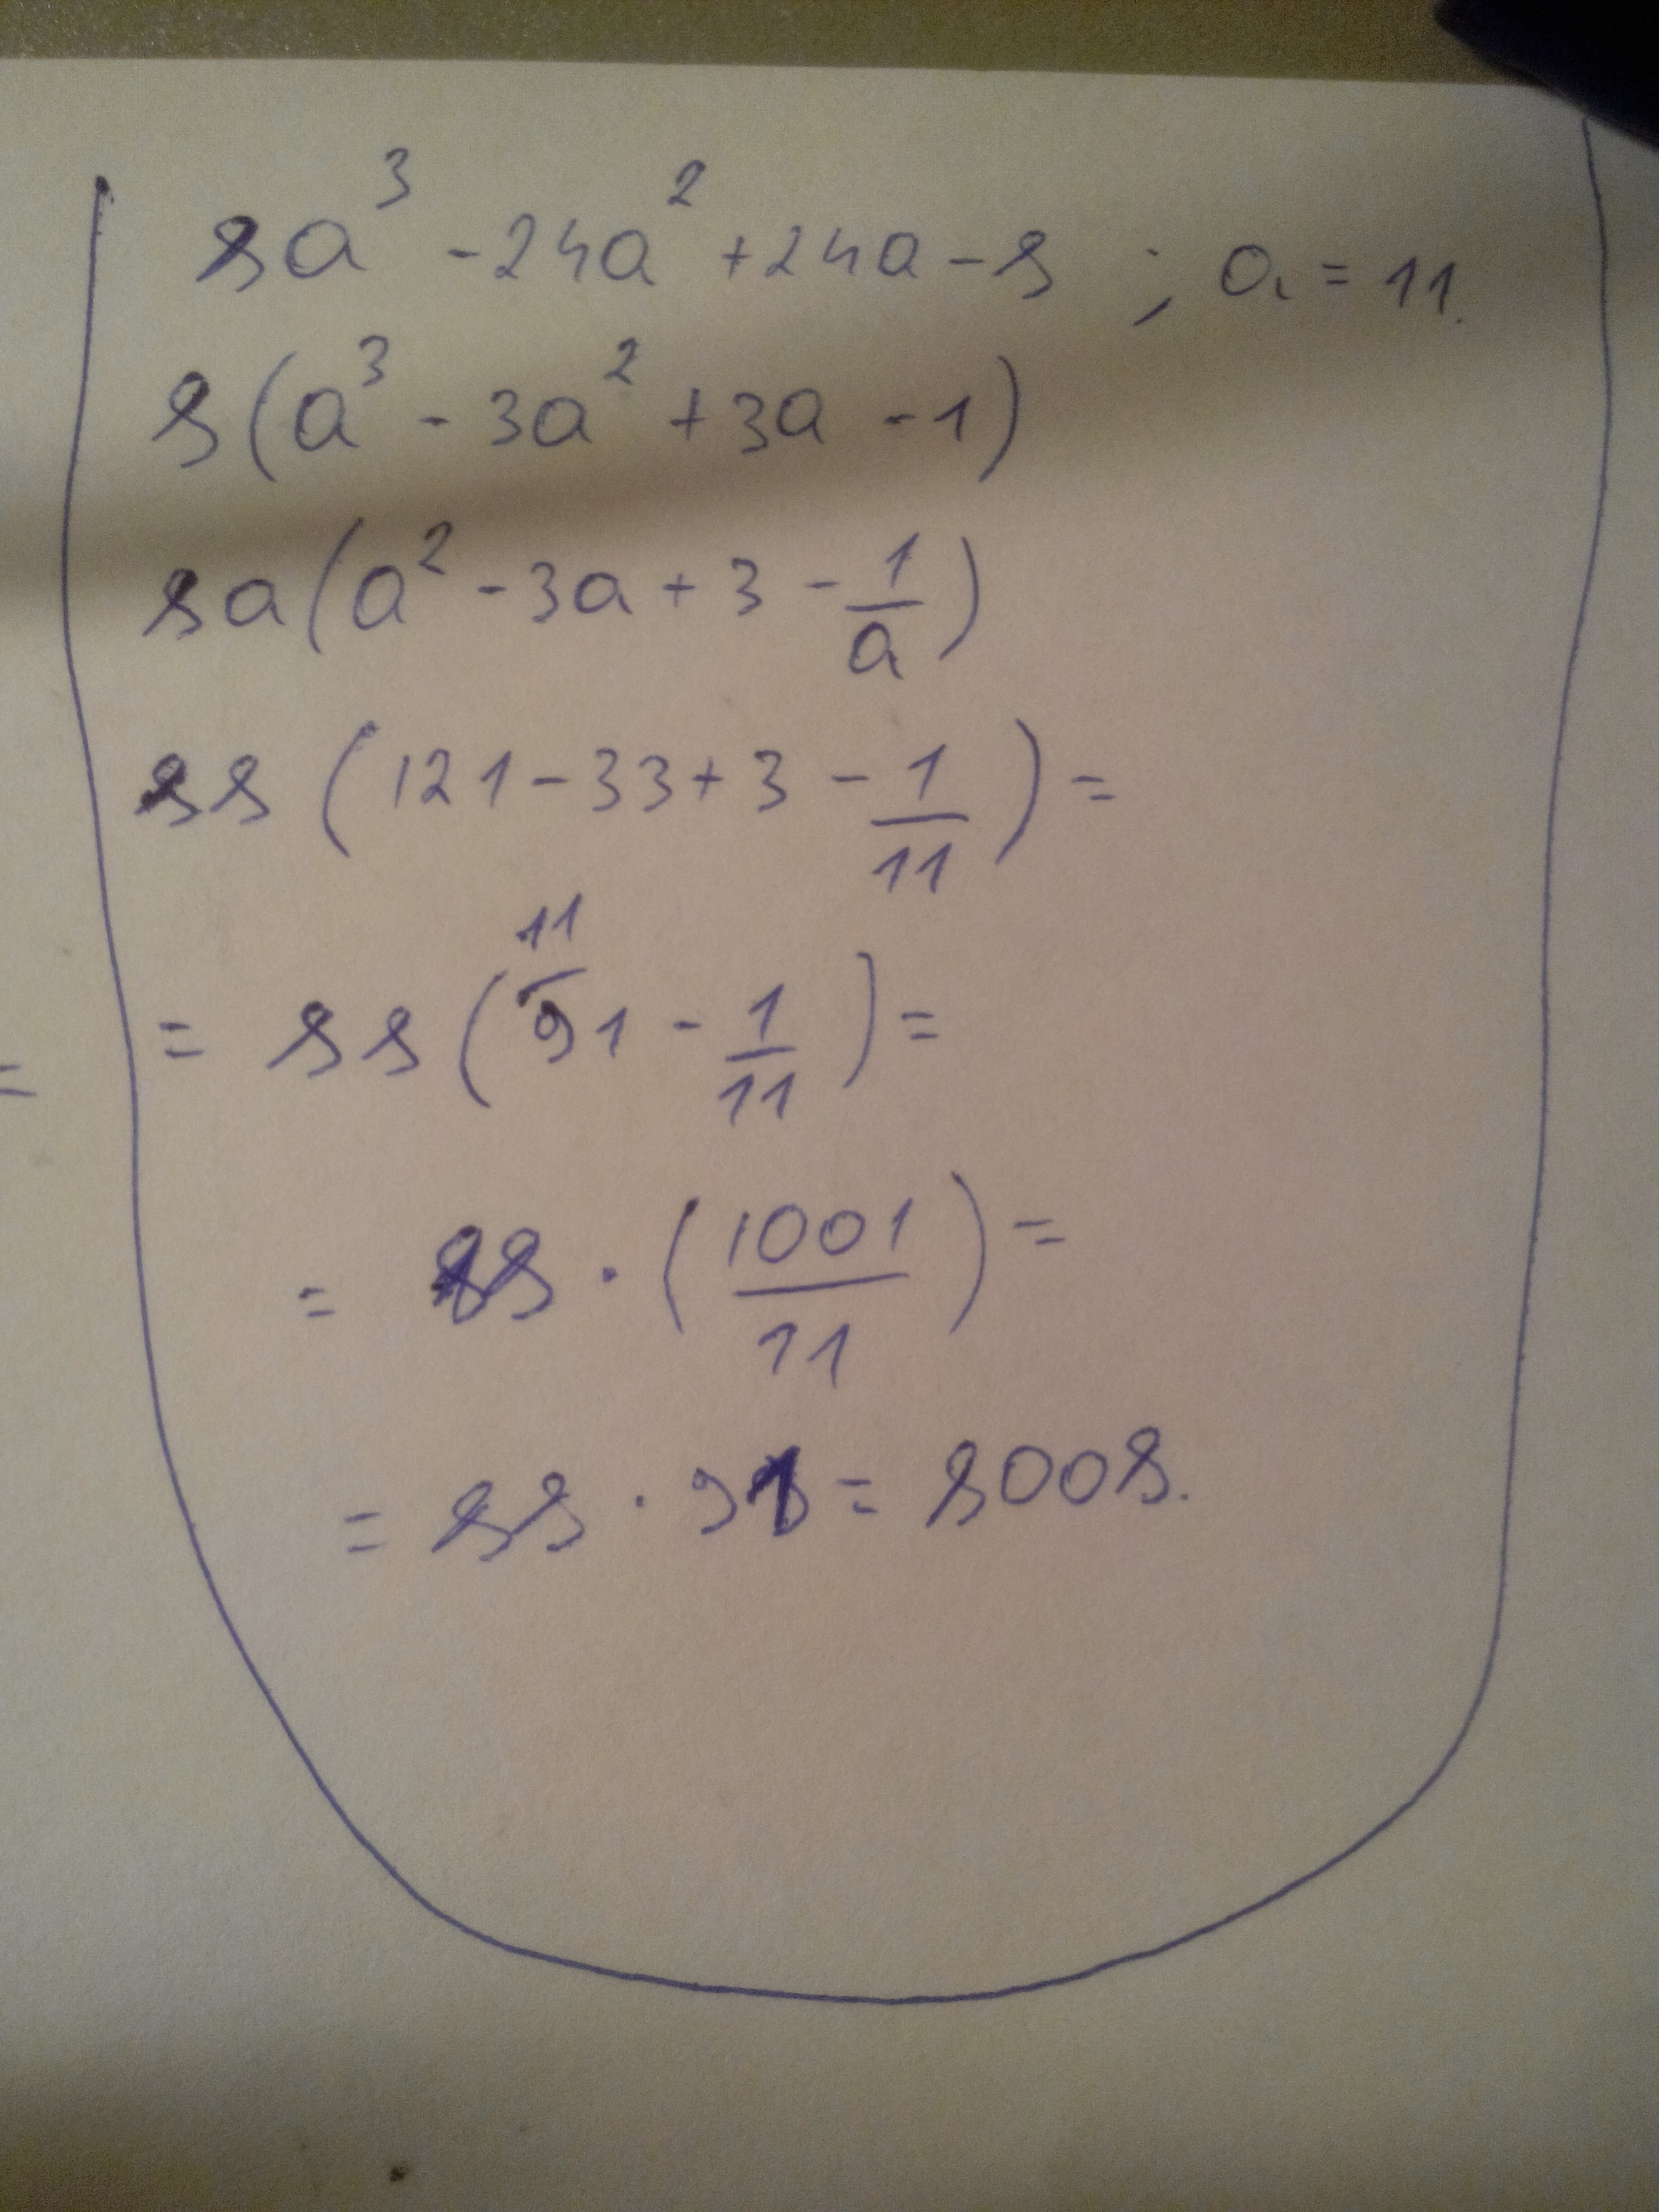 8a³ - 24a² + 24a - 8 ; a = 11.
8(a³ - 3a² + 3a - 1)
8a(a² - 3a + 3 - 1/a)
88(121 - 33 + 3 - 1/11) =
= 88(¹¹/91 - 1/11) =
= 88 · (1001/11) =
= 88 · 91 = 8008.
=